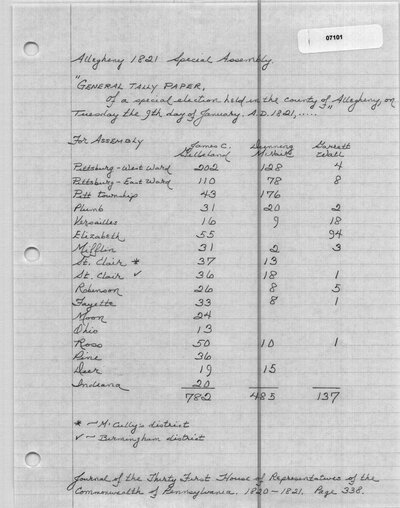 07101
Allegheny 1821 Special Assembly.
"GENERAL TALLY PAPER,
Of a special election held in the county of Allegheny, on
Tuesday the 9th day of January, A.D. 1821, .....
FOR ASSEMBLY James C. Dunning Garrett
Gilleland McNair Wall
Pittsburg - West Ward 202 128 4
Pittsburg - East Ward 110 78 8
Pitt township 43 176
Plumb 31 20 2
Versailles 16 9 18
Elizabeth 55 94
Mifflin 31 2 3
St. Clair * 37 13
St. Clair ✓ 36 18 1
Robinson 26 8 5
Fayette 33 8 1
Moon 24
Ohio 13
Ross 50 10 1
Pine 36
Deer 19 15
Indiana 20
782 485 137
* - McCully's district
✓ - Birmingham district
Journal of the Thirty First House of Representatives of the
Commonwealth of Pennsylvania. 1820-1821. Page 338.